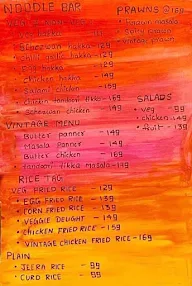 NOODLE BAR
hakka - 129
Schezwan hakka - 129
chilli garlic hakka - 129
Egg hakka - 129
chicken hakka - 149
Salami chicken - 159
chicken tandoori tikka - 169
Schezwan chicken - 149
VINTAGE MENU
Butter panner - 149
Masala Panner - 149
Butter chicken - 169
Tandoori tikka masala - 179
RICE TAG
VEG FRIED RICE - 129
EGG FRIED RICE - 139
CORN FRIED RICE - 139
VEGGIE DELIGHT - 149
CHICKEN FRIED RICE - 159
VINTAGE CHICKEN FRIED RICE - 169
PLAIN
JEERA RICE - 99
CURD RICE - 99
PRAWNS @ 159
masala
vintage prawn
SALADS
veg - 99
chicken - 149
fruit - 139